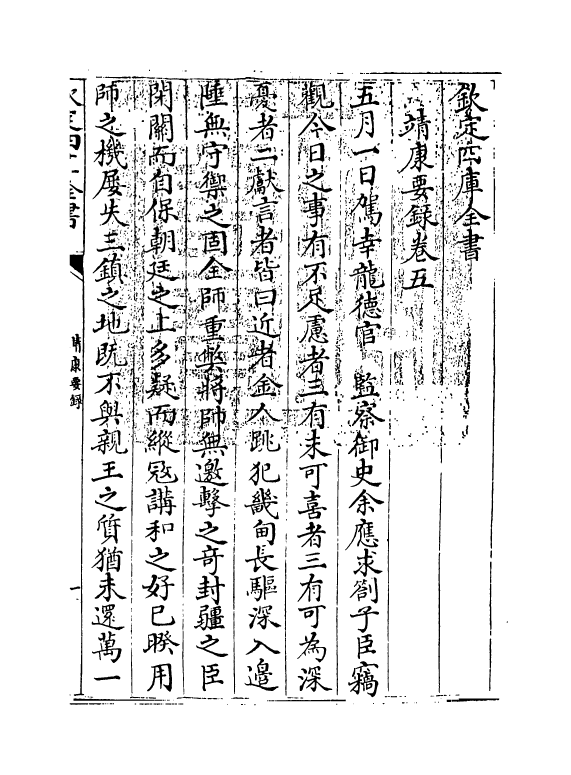 欽定四庫全書
靖康要錄卷五
五月一日駕幸龍德宫　監察御史余應求劄子臣竊
觀今日之事有不足慮者三有未可喜者三有可為深
憂者二獻言者皆曰近者金人跳犯畿甸長驅深入邉
陲無守禦之固全師重獘將帥無邀擊之竒封疆之臣
閉關而自保朝廷之上多疑而縱寇講和之好已暌用
師之機屢失三鎮之地既不與親王之質猶未還萬一
欽定四庫全書
靖康要錄
一